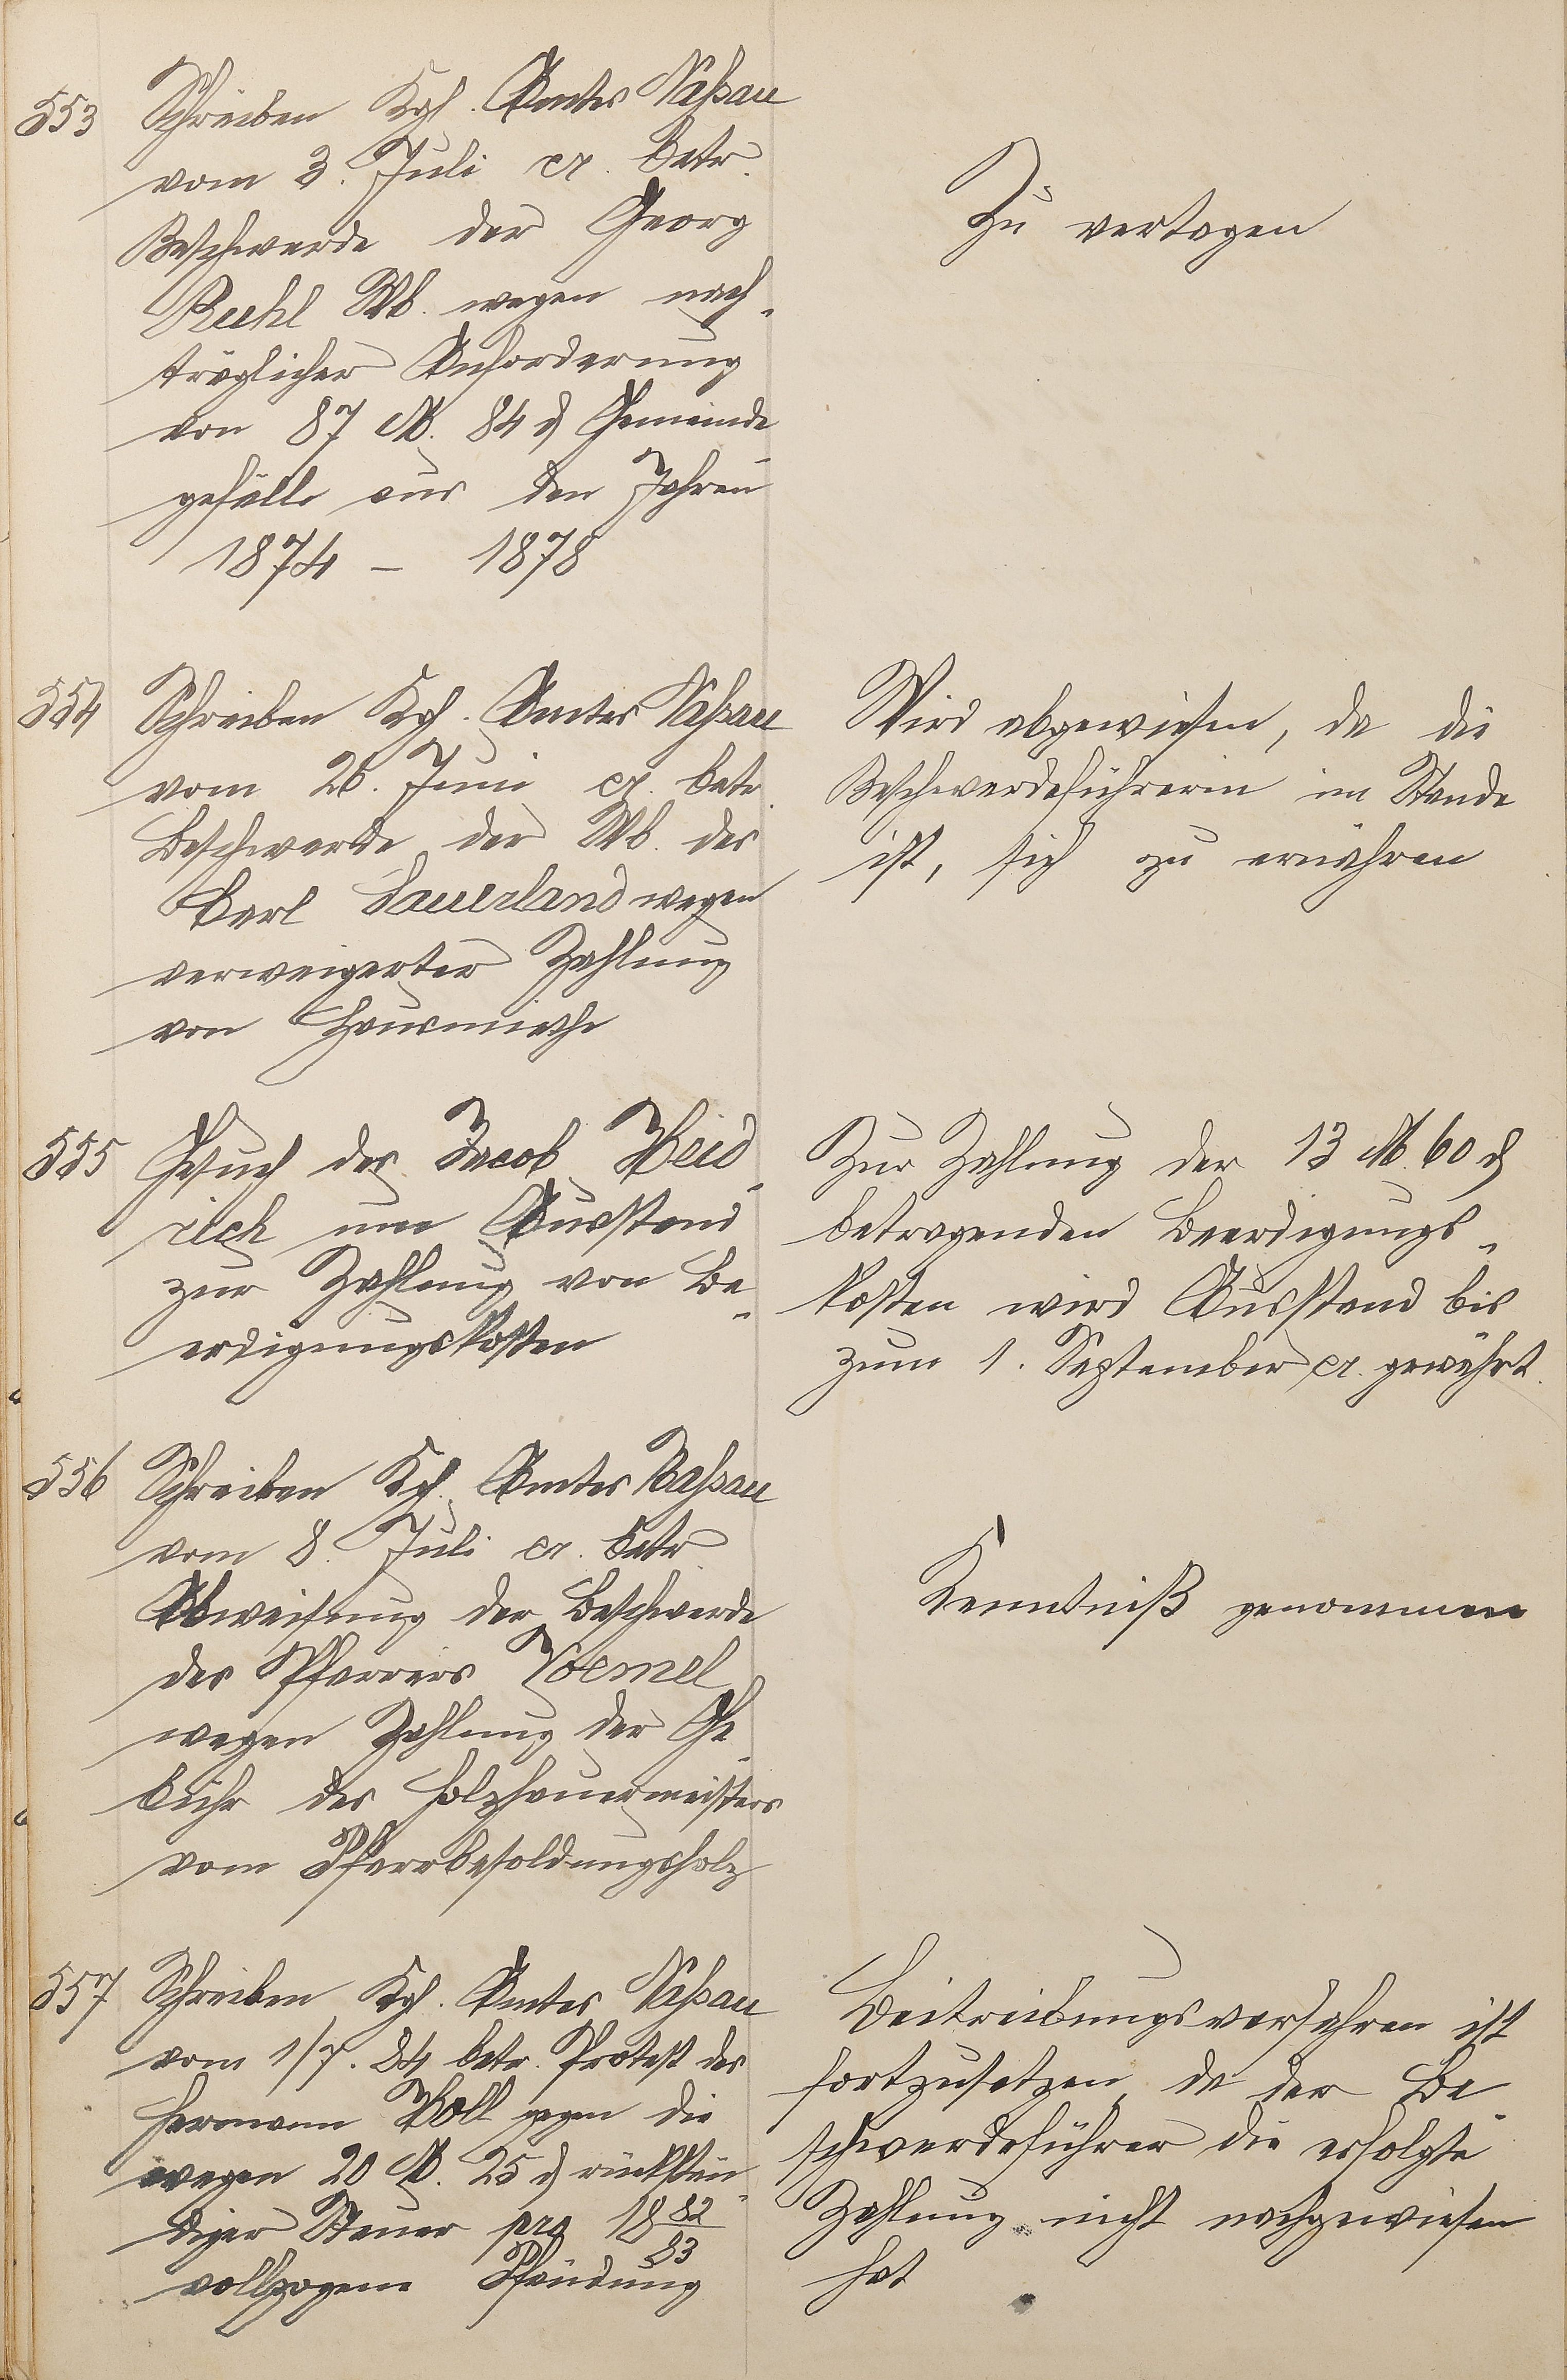 553
Schreiben Kgl. Amtes Naßau
vom 3. Juli cr. betr.
Beschwerde der Georg
Ruhl Wb. wegen nach-
träglicher Anforderung
von 87 M. 84 ₰ Gemeinde-
gefälle aus den Jahren
1874 – 1878
Zu vertagen
554
Schreiben Kgl. Amtes Naßau
vom 26. Juni cr. betr.
Beschwerde der Wb. des
Carl Sauerland wegen
verweigerter Zahlung
von Hausmiethe
Wird abgewiesen, da die
Beschwerdeführerin im Stande
ist, sich zu ernähren
555
Gesuch des Jacob Heid-
rich um Ausstand
zur Zahlung von Be-
erdigungskosten
Zur Zahlung der 13 M. 60 ₰
betragenden Beerdigungs-
kosten wird Ausstand bis
zum 1. September cr. gewährt.
556
Schreiben Kgl. Amtes Naßau
vom 8. Juli cr. betr.
Abweisung der Beschwerde
des Pfarrers Voemel
wegen Zahlung der Ge-
bühr des Holzhauermeisters
vom Pfarrbesoldungsholz
Kenntniß genommen
557
Schreiben Kgl. Amtes Naßau
vom 1/7. 84 betr. Protest des
Hermann Holl gegen die
wegen 20 M. 25 ₰ rückstän-
diger Steuer pro 18 82/83
vollzogene Pfändung
Beitreibungsverfahren ist
fortzusetzen, da der Be-
schwerdeführer die erfolgte
Zahlung nicht nachgewiesen
hat